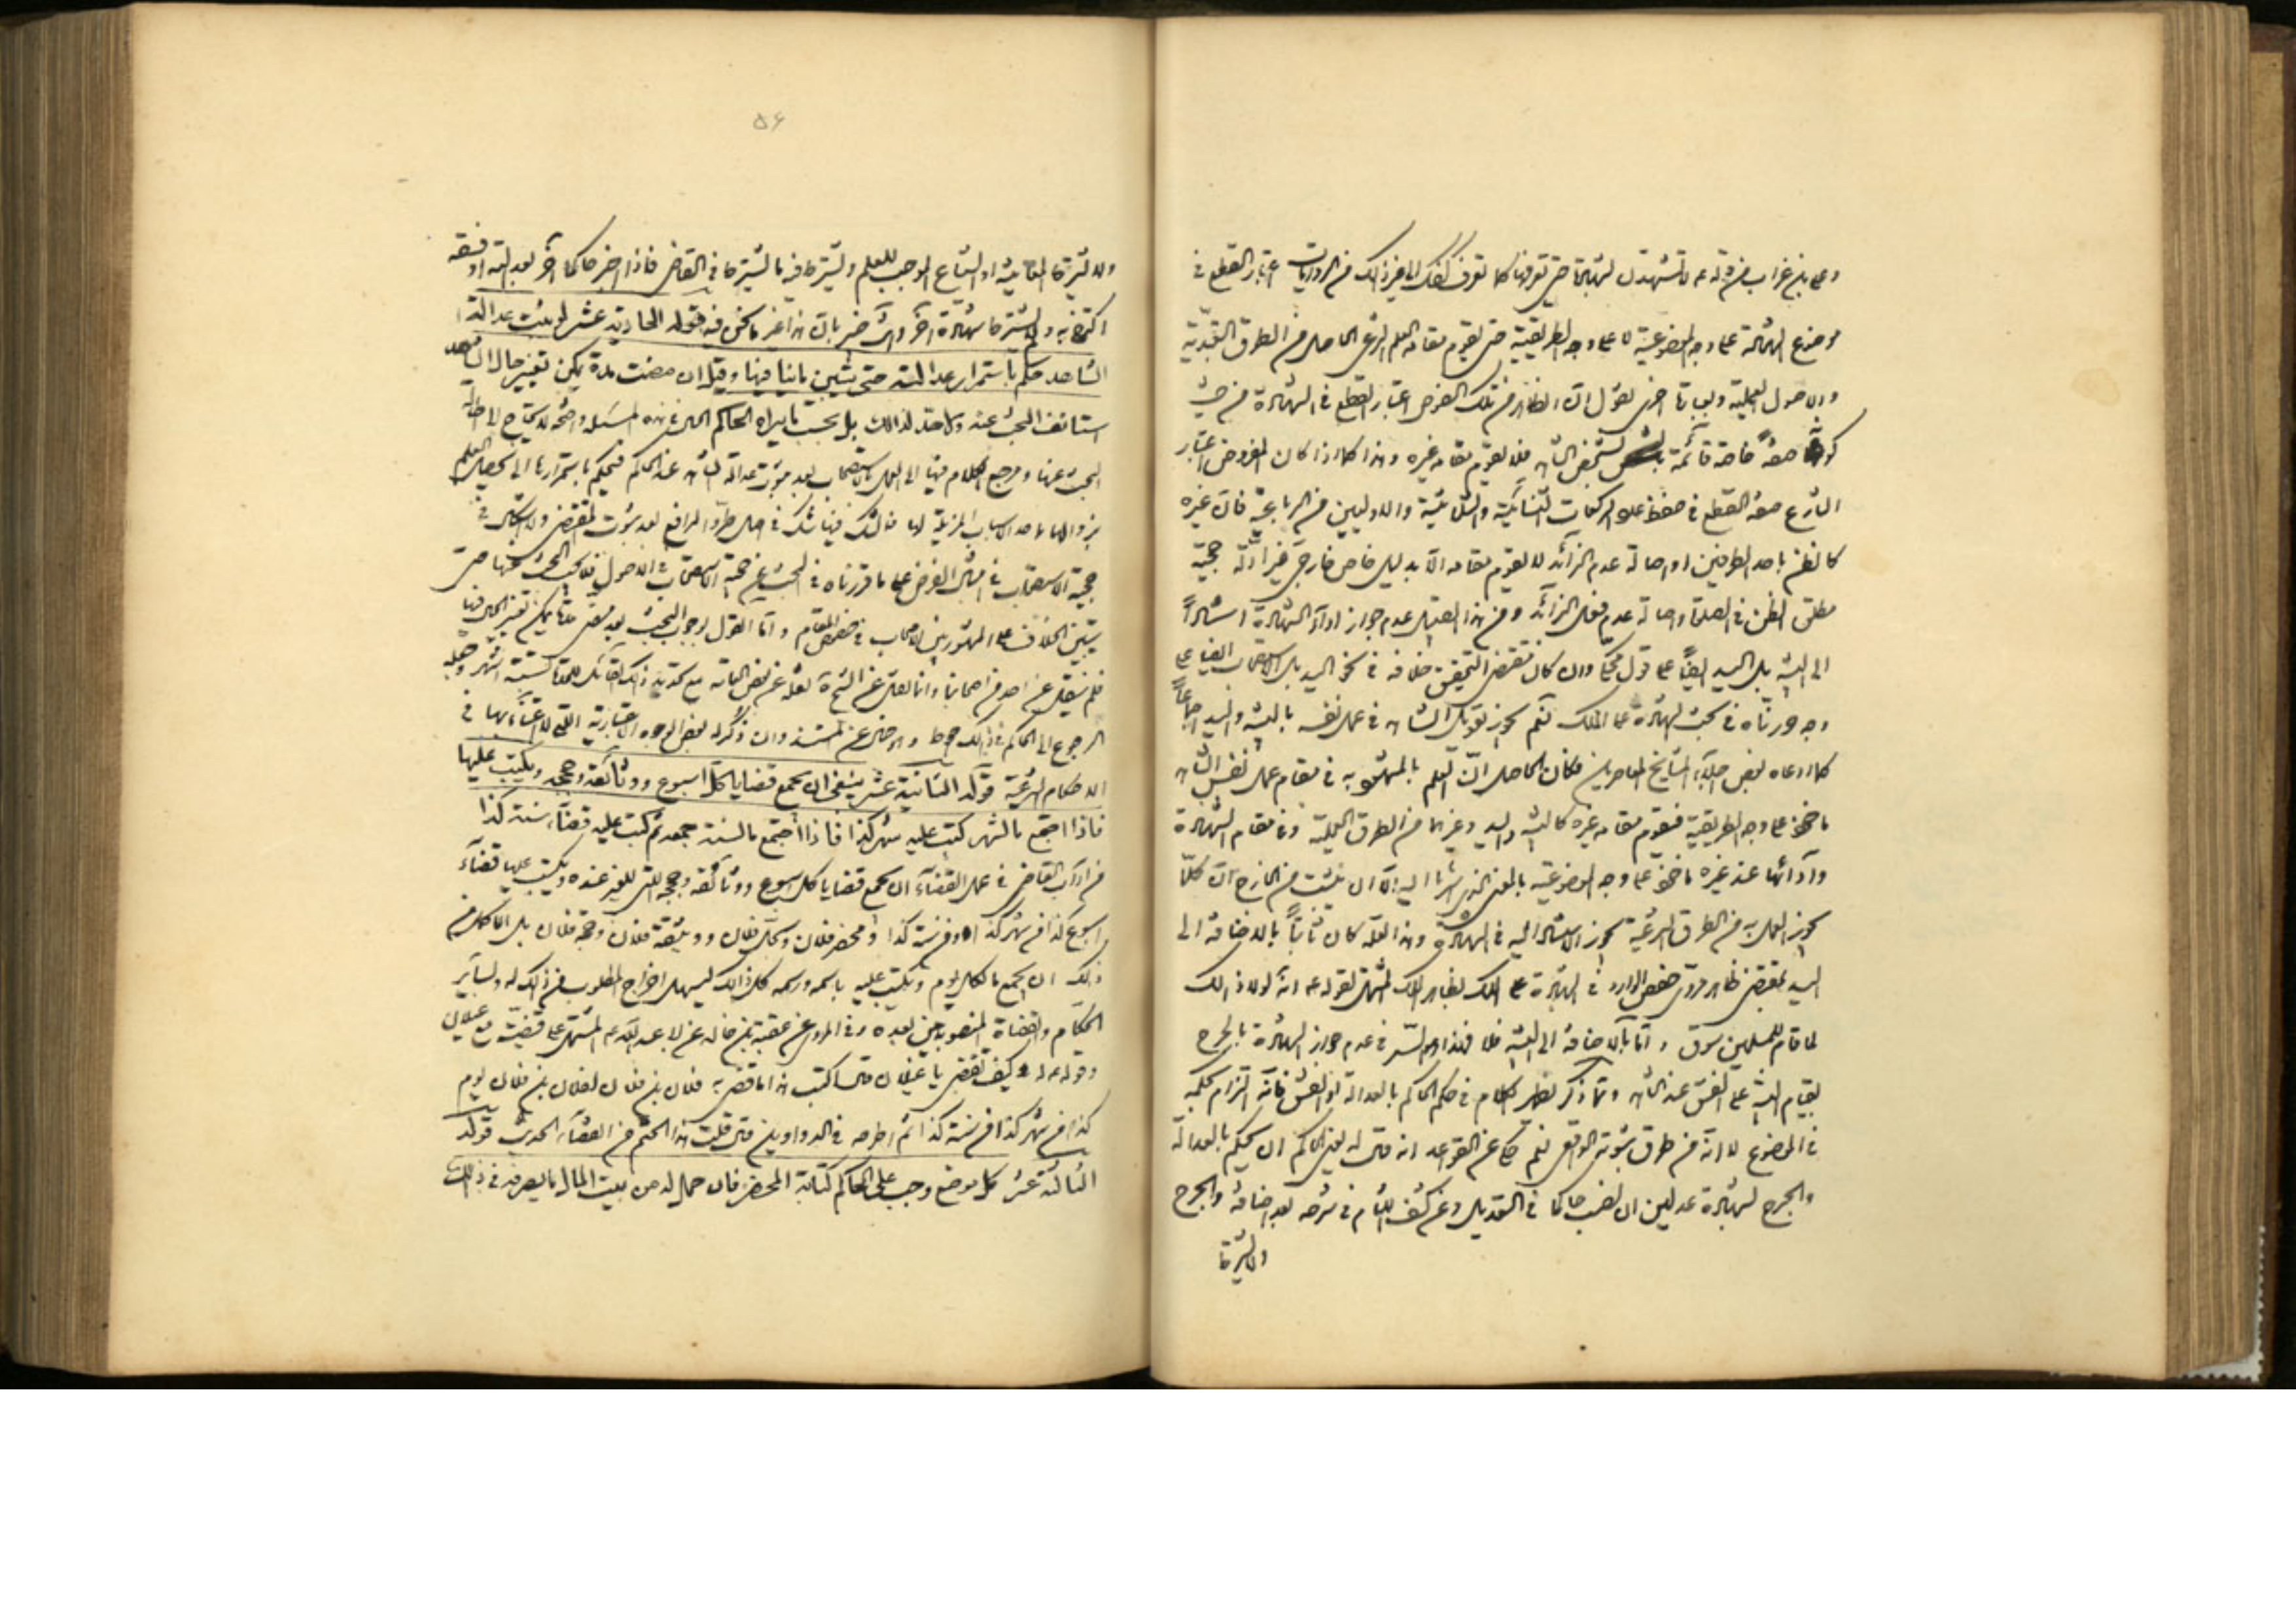 وعلي بن غراب من قوله عه لا تشهدن بشهادة حتى تعرفها كما تعرف كفك الى غير ذلك من الروايات اعتبار القطع في
موضوع الشهادة على وجه الموضوعية لا على وجه الطريقية حتى يقوم مقامه العلم الشرعي الحاصل من الطرق التعبدية
والاصول العملية وبعبارة اخرى نقول ان الظاهر من تلك النصوص اعتبار القطع في الشهادة من حيث
كونه صفة خاصة قائمة بشخص الشاهد فلا يقوم مقامه غيره وهذا كما اذا كان المفروض اعتبار
الشارع صفة القطع في حفظ عدد الركعات الثنائية والثلاثية والاوليين من الرباعية فان غيره
كالظن باحد الطرفين او اصالة عدم الزائد لا يقوم مقامه الا بدليل خاص خارجي غير ادلة حجية
مطلق الظن في الصلوة واصالة عدم فعل الزائد ومن هذا القبيل عدم جواز اداء الشهادة استنادا
الى البينة بل اليد ايضا على قول محكي وان كان مقتضى التحقيق خلافه في نحو اليد بل الاستصحاب ايضا على
وجه حررناه في بحث الشهادة على الملك نعم يجوز تعويل الشاهد في عمل نفسه بالبينة واليد اجماعا
كما ادعاه بعض اجلاء المشايخ المعاصرين فكان الحاصل ان العلم بالمشهود به في مقام عمل نفس الشاهد
ماخوذ على وجه الطريقية فيقوم مقامه غيره كالبينة واليد وغيرهما من الطرق العملية وفي مقام الشهادة
وادائها عند غيره ماخوذ على وجه الموضوعية بالمعنى الذي اشرنا اليه الا ان يثبت من الخارج ان كلما
يجوز العمل به من الطرق الشرعية يجوز الاستناد اليه في الشهادة وهذا لعله كان ثابتا بالاضافة الى
اليد بمقتضى ظاهر مروي حفص الوارد في الشهادة على الملك بظاهر اليد المشتمل لقوله عه انه لولا ذلك
لما قام للمسلمين سوق واما بالاضافة الى البينة فلا فهذا هو السر في عدم جواز الشهادة بالجرح
بقيام البينة على الفسق عند الشاهد ومما ذكر يظهر الكلام في حكم الحاكم بالعدالة او الفسق فانه الزام لحكمه
في الموضوع لا انه من طرق ثبوته الواقعي نعم حكي عن القواعد انه قال له يعني الحاكم ان يحكم بالعدالة
والجرح بشهادة عدلين ان نصب حاكما في التعديل وعن كشف اللثام في شرحه بعد اضافة والجرح
ولا يشترط
۵۶
ولا يشترط المعاينة او الشياع الموجب للعلم ويشترط فيه ما يشترط في القاضي فاذا اخبر حاكما اخر بعدالته او فسقه
اكتفى به ولا يشترط شهادة اخر وانت خبير بان هذا غير ما نحن فيه قوله الحادية عشر لو ثبت عدالة
الشاهد حكم باستمرار عدالته حتى يتبين ما ينافيها وقيل ان مضت مدة يمكن تغير حال الشاهد
استانف البحث عنه ولا حد لذلك بل بحسب ما يراه الحاكم الحال في هذه المسئلة واضحة لا يحتاج الى اطالة
البحث عنها ومرجع الكلام فيها الى العمل بالاستصحاب بعد ثبوت عدالة الشاهد عند الحاكم فيحكم باستمرارها الى تحصيل العلم
بزوالها باحد الاسباب المزيلة لها فالشك فيها شك في اصل طرو الرافع بعد ثبوت المقتضي ولا اشكال في
حجية الاستصحاب في مثل الفرض على ما قررناه في البحث عن حجية الاستصحاب في الاصول فلا يجب البحث عنها حتى
يتبين الخلاف على المشهور بين الاصحاب في خصوص المقام واما القول بوجوب البحث بعد مضي مدة يمكن تغير الحال فيها
فلم ينقل عن احد من اصحابنا وانما نقل عن الشيخ ره نقله عن بعض العامة مع تحديد ذلك القائل للمدة بستة اشهر وجعله
الرجوع الى الحاكم في ذلك احوط والا خلى عن المستند وان ذكر له بعض الوجوه الاعتبارية التي لا اعتناء بها في
الاحكام الشرعية قوله الثانية عشر ينبغي ان يجمع قضايا كل اسبوع ووثائقه وحججه ويكتب عليها
فاذا اجتمع ما لشهر كتب عليه شهر كذا فاذا اجتمع ما لسنة جمعه ثم كتب عليه قضاء سنة كذا
من اداب القاضي في عمل القضاء ان يجمع قضايا كل اسبوع ووثائقه وحججه التي للغير عنده ويكتب عليها قضاء
اسبوع كذا من شهر كذا من سنة كذا ومحضر فلان وسجل فلان ووثيقة فلان وحجة فلان بل الاكمل من
ذلك ان يجمع ما لكل يوم ويكتب عليه باسمه ورسمه كل ذلك ليسهل اخراج المطلوب من ذلك له ولساير
الحكام والقضاة المنصوبين بعده وفي المروي عن عقبة بن خالد عن ابي عبد الله عه المشتمل على قضيته مع غيلان
وقوله عه له كيف تقضي يا غيلان قال اكتب هذا ما قضى به فلان بن فلان لفلان بن فلان يوم
كذا من شهر كذا من سنة كذا ثم اطرحه في الدواوين قال قلت هذا الحتم من القضاء الحديث قوله
الثالثة عشر كل موضع وجب على الحاكم كتابة المحضر فان حمل له من بيت المال ما يصرفه في ذلك